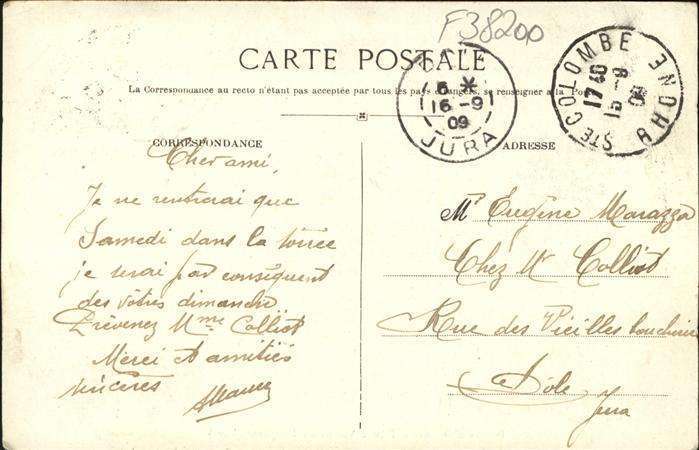 F38200
CARTE POSTALE
La Correspondance au recto n'étant pas acceptée par tous les pays étrangers, se renseigner à la Poste
5 *
16 - 9
09
JURA
STE COLOMBE RHONE
17 40
15 - 9
09
CORRESPONDANCE
Cher ami,
Je ne rentrerai que
Samedi dans la soirée
je serai par conséquent
des vôtres dimanche
Prévenez Mme Colliot
Merci et amitiés
sincères
ADRESSE
Mr Eugène Marazza
Chez Mr Colliot
Rue des Vieilles boucheries
Dole
Jura